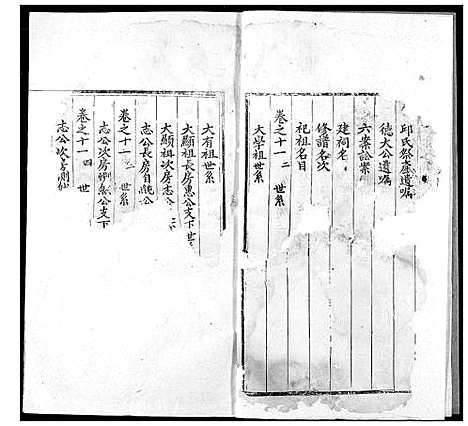 邱氏祭產遺囑
德大公遺囑
六案訟案
建祠名
修譜名次
祀祖名目
卷之十一 二 世系
大學祖世系
大有祖世系
大顯祖長房惠公支下世
大顯祖次房志公
志公長房自純公
卷之十一 三 世系
志公次房卿公支下
卷之十一 四 世
志公次房